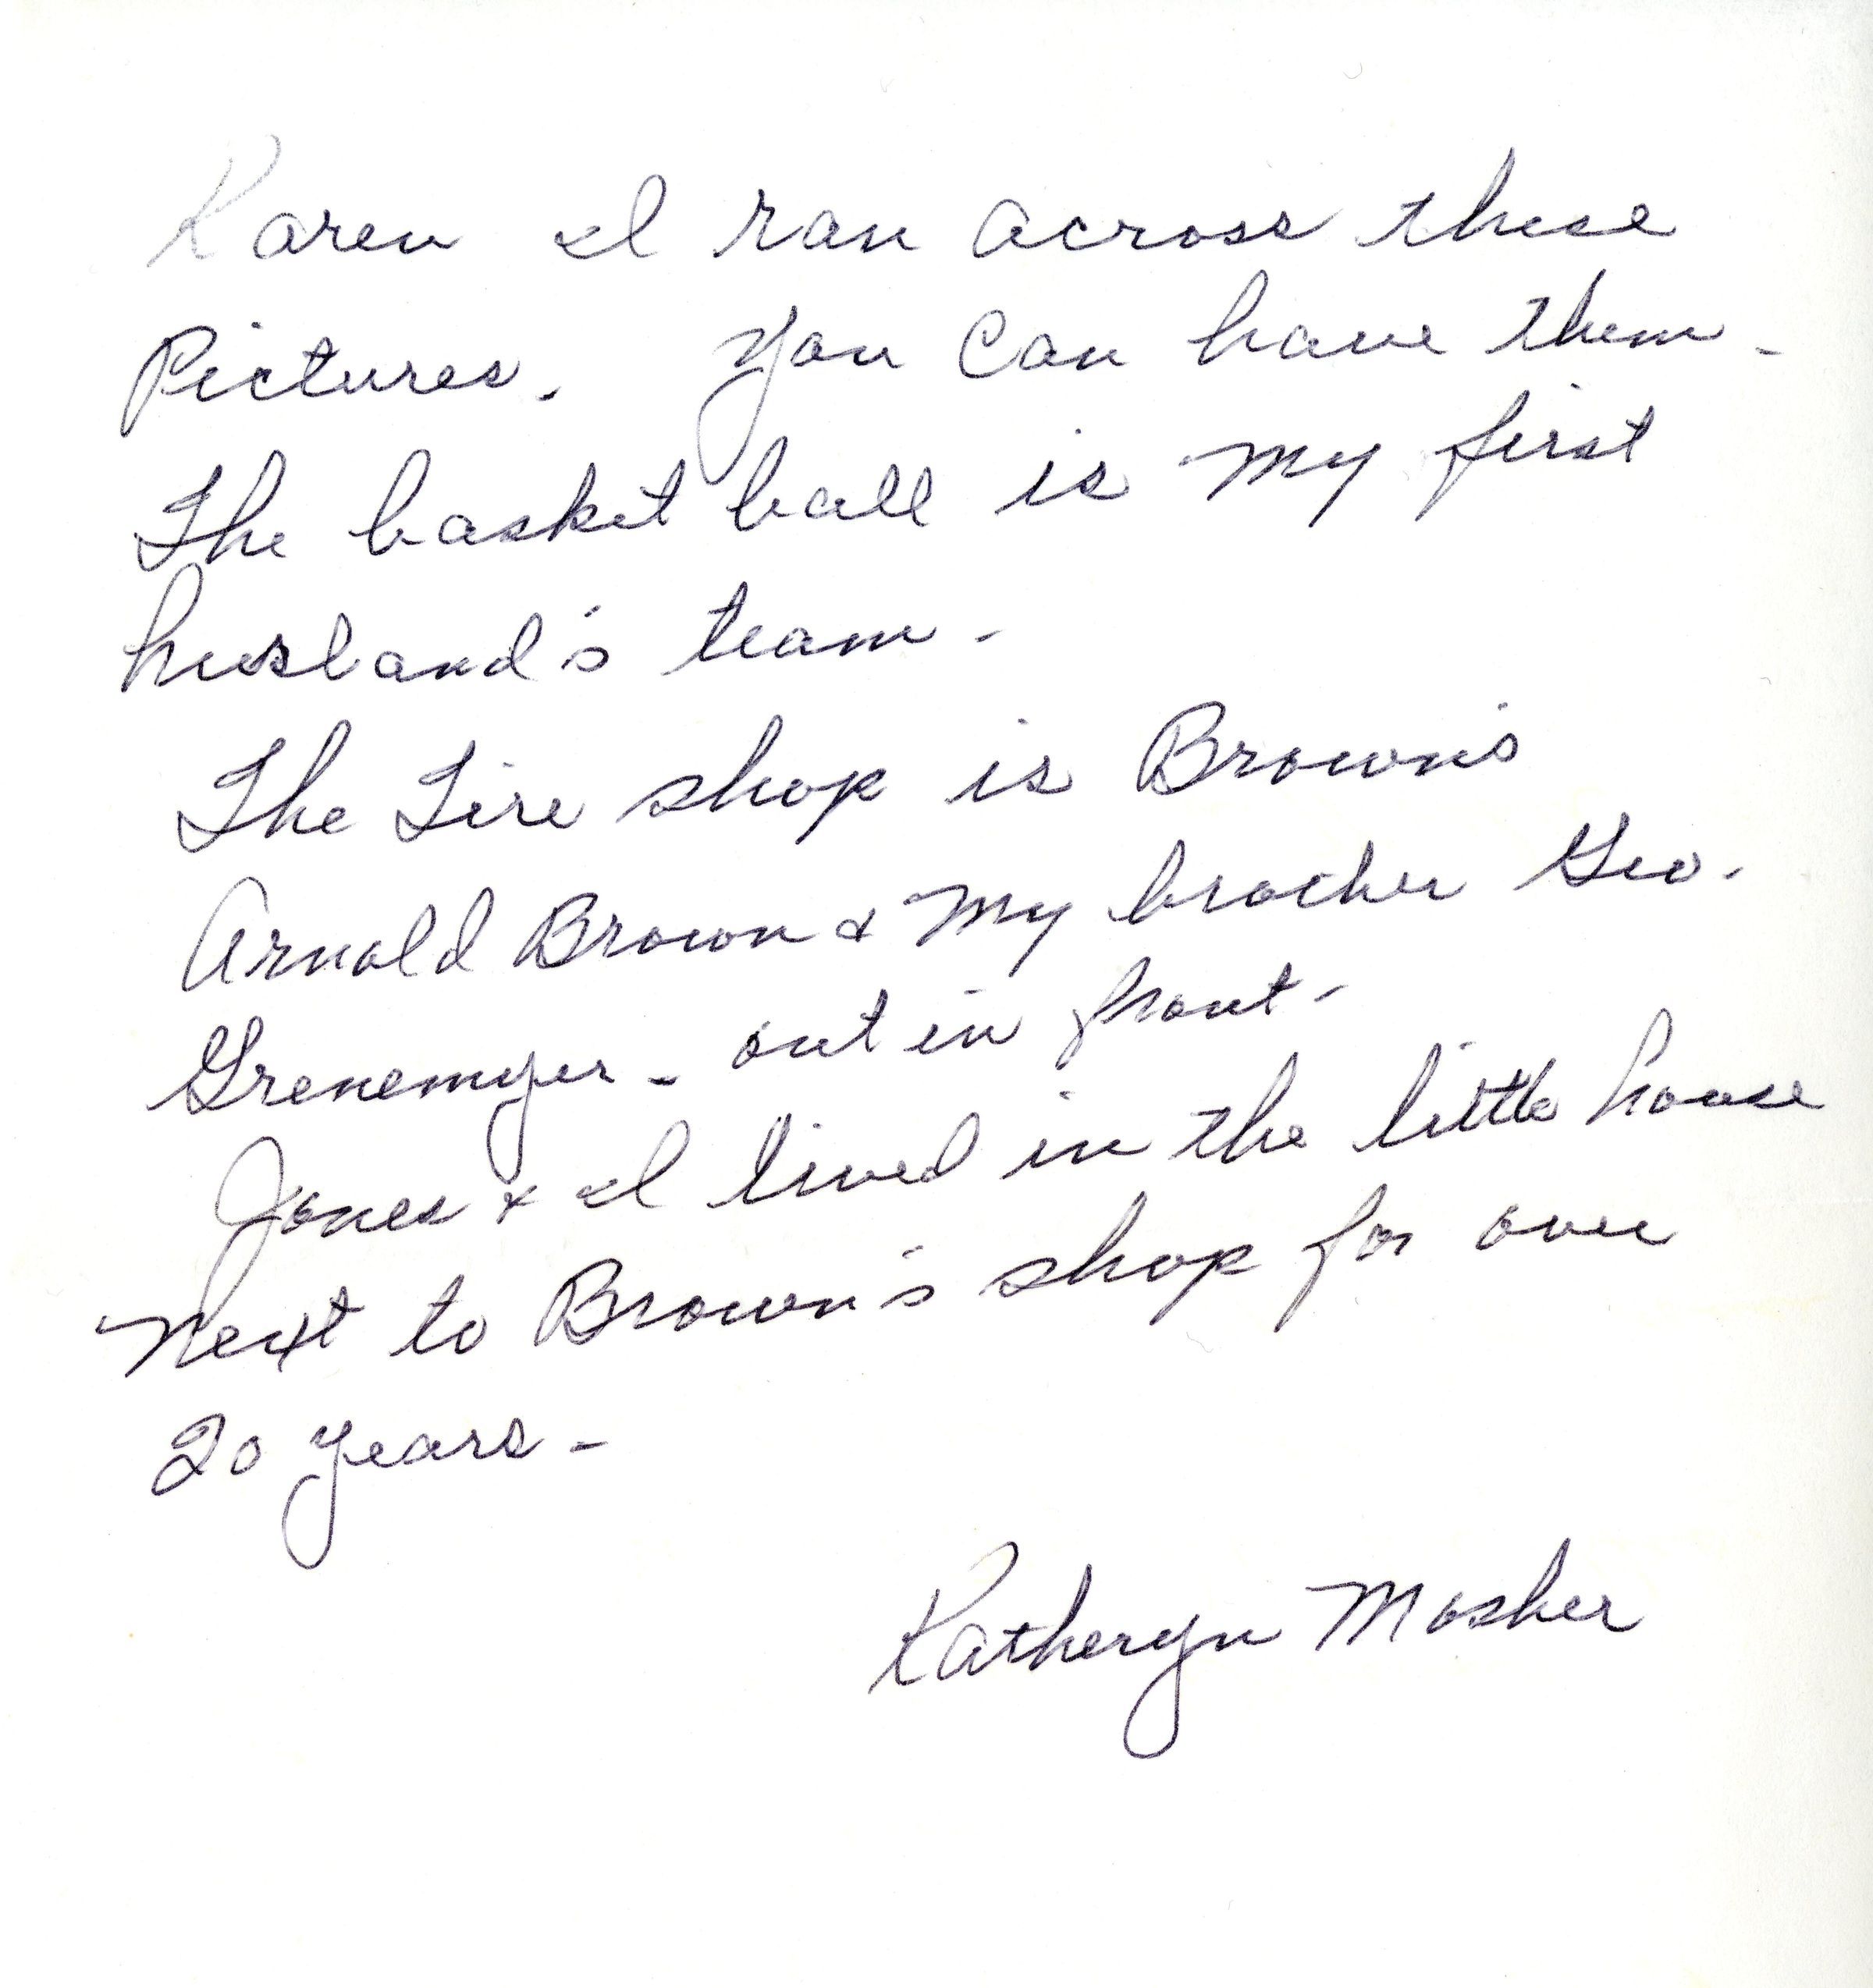 Karen I ran across these
Pictures. You can have them -
The basket ball is my first
husband's team -
The Tire shop is Brown's
Arnold Brown & my brother Geo.
Grenemyer - out in front -
Jones & I lived in the little house
next to Brown's shop for over
20 years -
Katheryn Mosher